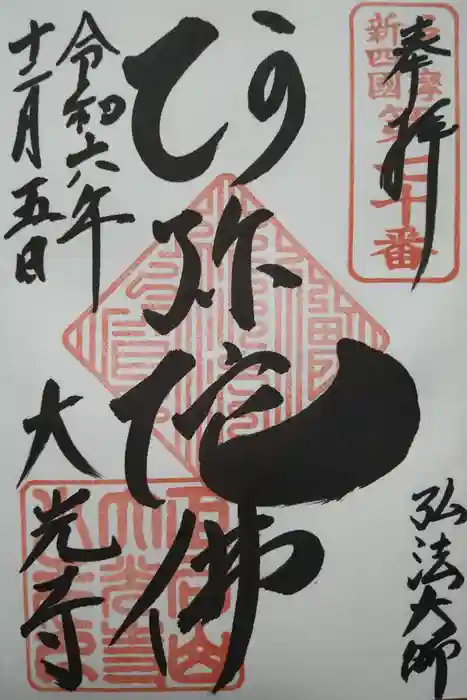 奉拝
多摩
新四國
第
十番
弘法大師
阿弥陀佛
令和六年
十二月五日
大光寺